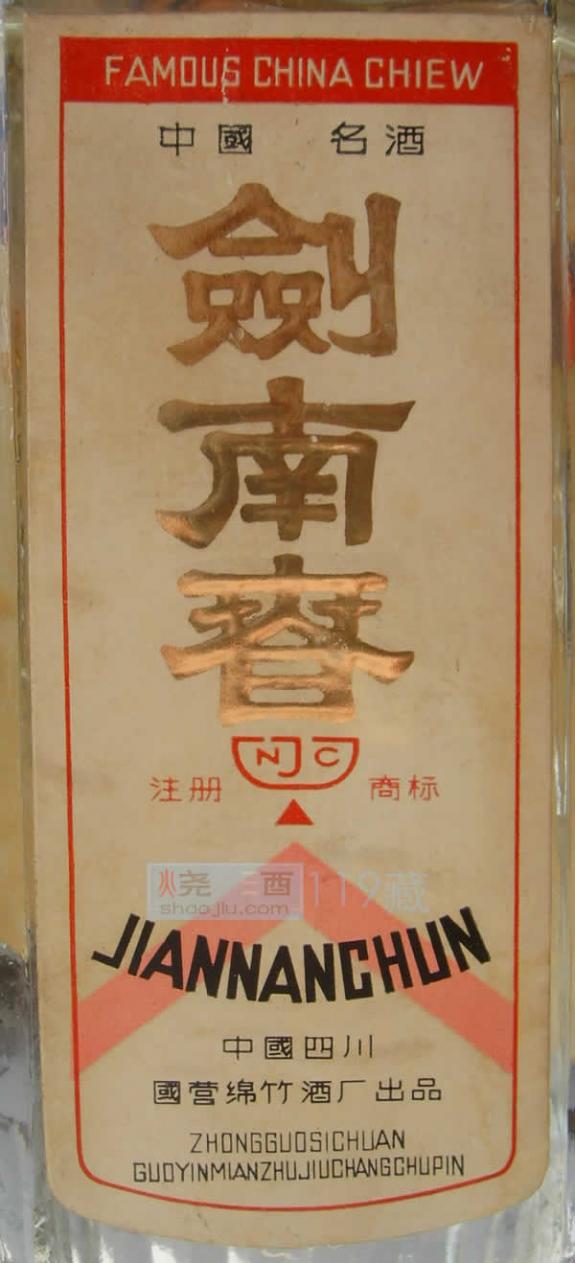 FAMOUS CHINA CHIEW
中國 名酒
劍南春
NJC
注册 商标
烧 酒 119藏
shaojiu.com
JIANNANCHUN
中國四川
國营绵竹酒厂出品
ZHONGGUOSICHUAN
GUOYINMIANZHUJIUCHANGCHUPIN